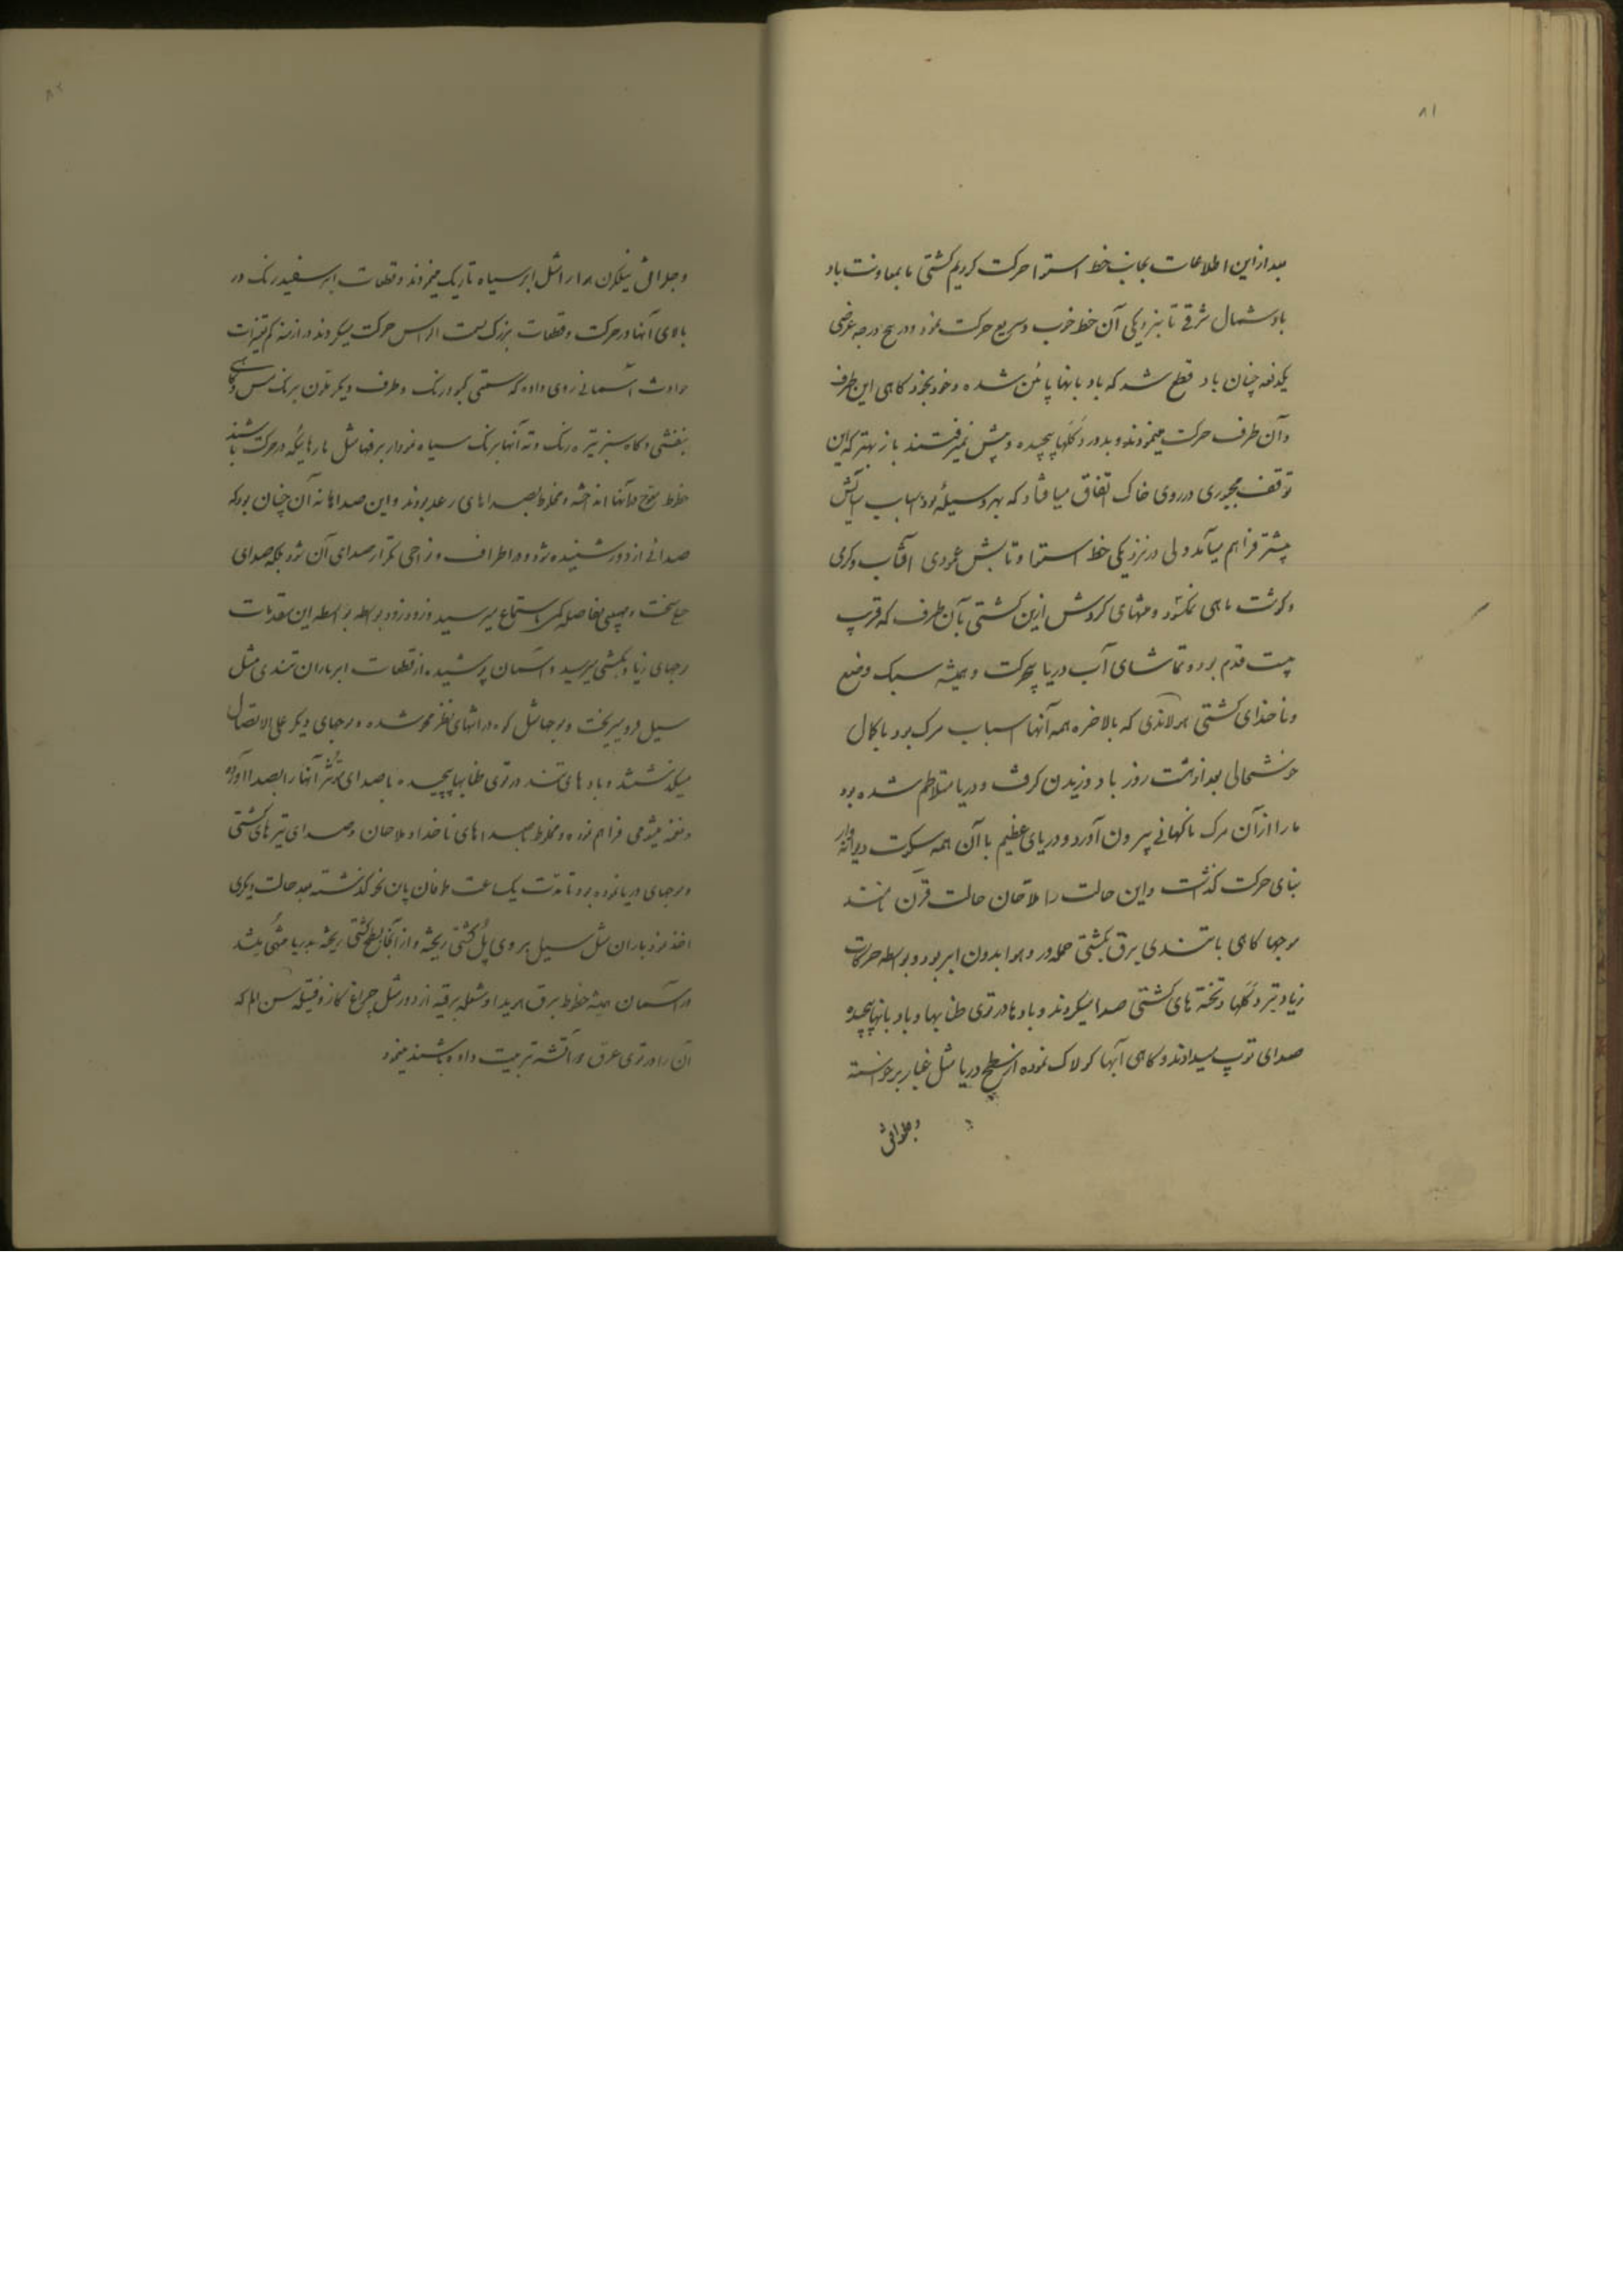 ۸۱
بعد از این اطلاعات بجانب خط استوا حرکت کردیم کشتی ما بمعاونت باد
باد شمال شرقی تا بنزدیکی آن خط خوب و سریع حرکت نمود و در پنج درجه عرضی
یکدفعه چنان باد قطع شد که بادبانها پائین شده و خود بخود گاهی این طرف
و آن طرف حرکت مینمودند و بدور دکلها پیچیده و پیش نمیرفتند باز بهتر که این
توقف مجبوری در روی خاک اتفاق میافتاد که بهر وسیله بود اسباب آسایش
بیشتر فراهم میآمد ولی در نزدیکی خط استوا و تابش عمودی آفتاب و گرمی
و گوشت ماهی نمکسود و منتهای گردش ازین کشتی بآن طرف که قریب
بیست قدم بود و تماشای آب دریا بیحرکت و همیشه سبک وضع
و ناخدای کشتی هولاندی که بالاخره همه آنها اسباب مرگ بود با کمال
خوشحالی بعد از هشت روز باد وزیدن گرفت و دریا متلاطم شده بود
ما را از آن مرگ ناگهانی بیرون آورد و دریای عظیم با آن همه سکوت دیوانه وار
بنای حرکت گذاشت و این حالت را ملاحان حالت قرن نامند
موجها گاهی با تندی برق بکشتی حمله ور و هوا بدون ابر بود و بواسطه حرکات
زیاد تیر دکلها و تخته های کشتی صدا میکردند و بادها در توی طنابها و بادبانها پیچیده
صدای توپ میدادند و گاهی آبها کولاک نموده از سطح دریا مثل غبار برخواسته
۸۲
نیلگون ما را مثل ابر سیاه تاریک مینمودند و قطعات ابر سفید رنگ در
بالای آنها در حرکت و قطعات بزرگ بسمت الراس حرکت میکردند در ازمنه کم تغیرات
حوادث آسمانی روی داده که سمتی کبود رنگ و طرف دیگر ملون برنگ مس و گاهی
بنفشی و گاه سبز تیره رنگ و ته آنها برنگ سیاه نمودار برقها مثل مارهائیکه در حرکت باشند
خطوط معوج در آنها انداخته و مخلوط بصداهای رعد بودند و این صداها نه آن چنان بود که
صدائی از دور شنیده شود و در اطراف و نواحی تکرار صدای آن شود بلکه صدائی
سخت و مهیبی بفاصله کمی باستماع میرسید و زود زود بواسطه این مقدمات
موجهای زیاد بکشتی میرسید و آسمان پوشیده از قطعات ابر باران تندی مثل
سیل فرو میریخت و موجها مثل کوه در انتهای نظر محو شده و موجهای دیگر علی الاتصال
میگذشتند و بادهای تند در توی طنابها پیچیده با صدای مؤثر آنها را بصدا آورده
و نغمه میشومی فراهم نموده و مخلوط بصداهای ناخدا و ملاحان و صدای تیرهای کشتی
و موجهای دریا نموده بود تا مدت یکساعت طوفان باین نحو گذشته بعد حالت دیگری
اخذ نمود باران مثل سیل بروی پل کشتی ریخته و از آنجا بسطح کشتی ریخته بدریا منتهی میشد
در آسمان همیشه خطوط برق هویدا و شعله برقیه از دور مثل چراغ گاز و فتیله که
آن را در توی عرق و تربیت داده باشند مینمود